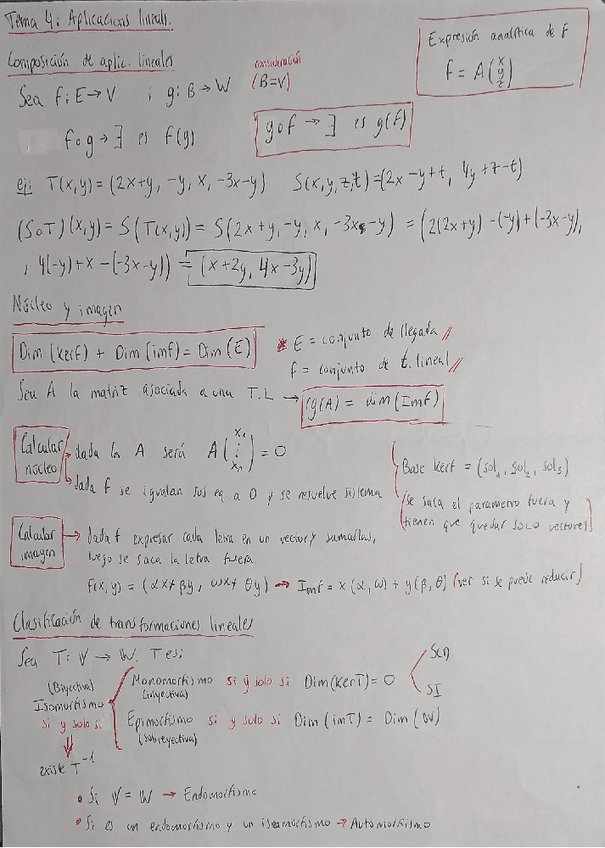 Tema 4: Aplicacions lineals.
Expresión analítica de F
f = A(x y z)
Composición de aplic. lineales
consideración
(B=V)
Sea f: E → V ; g: B → W
f∘g → ∃ es f(g)
g∘f → ∃ es g(f)
ej: T(x,y) = (2x+y, -y, x, -3x-y) S(x,y,z,t) = (2x-y+t, 4y+z-t)
(S∘T)(x,y) = S(T(x,y)) = S(2x+y, -y, x, -3x-y) = (2(2x+y) -(-y)+(-3x-y),
, 4(-y)+x-(-3x-y)) = (x+2y, 4x-3y)
Núcleo y imagen
Dim (kerf) + Dim (imf) = Dim (E)
* E = conjunto de llegada //
f = conjunto de t. lineal //
Sea A la matriz asociada a una T.L → rg(A) = dim (Imf)
Calcular núcleo
dada la A será A(x₁ ⋮ xₙ) = 0
dada f se igualan sus eq a 0 y se resuelve sistema
Base kerf = (sol₁, sol₂, sol₃)
(se saca el parametro fuera y
tienen que quedar solo vectores)
Calcular imagen
→ Dada f expresar cada letra en un vector y sumarlas,
luego se saca la letra fuera.
F(x,y) = (αx+βy, ωx+θy) → Imf = x(α,ω) + y(β,θ) (ver si se puede reducir)
Clasificación de transformaciones lineales
Sea T: V → W. T es:
(Biyectiva)
Isomorfismo
si y solo si
existe T⁻¹
Monomorfismo si y solo si Dim (kerT) = 0
(inyectiva)
SCD
SI
Epimorfismo si y solo si Dim (imT) = Dim (W)
(sobreyectiva)
• Si V = W → Endomorfismo
• Si es un endomorfismo y un isomorfismo → Automorfismo